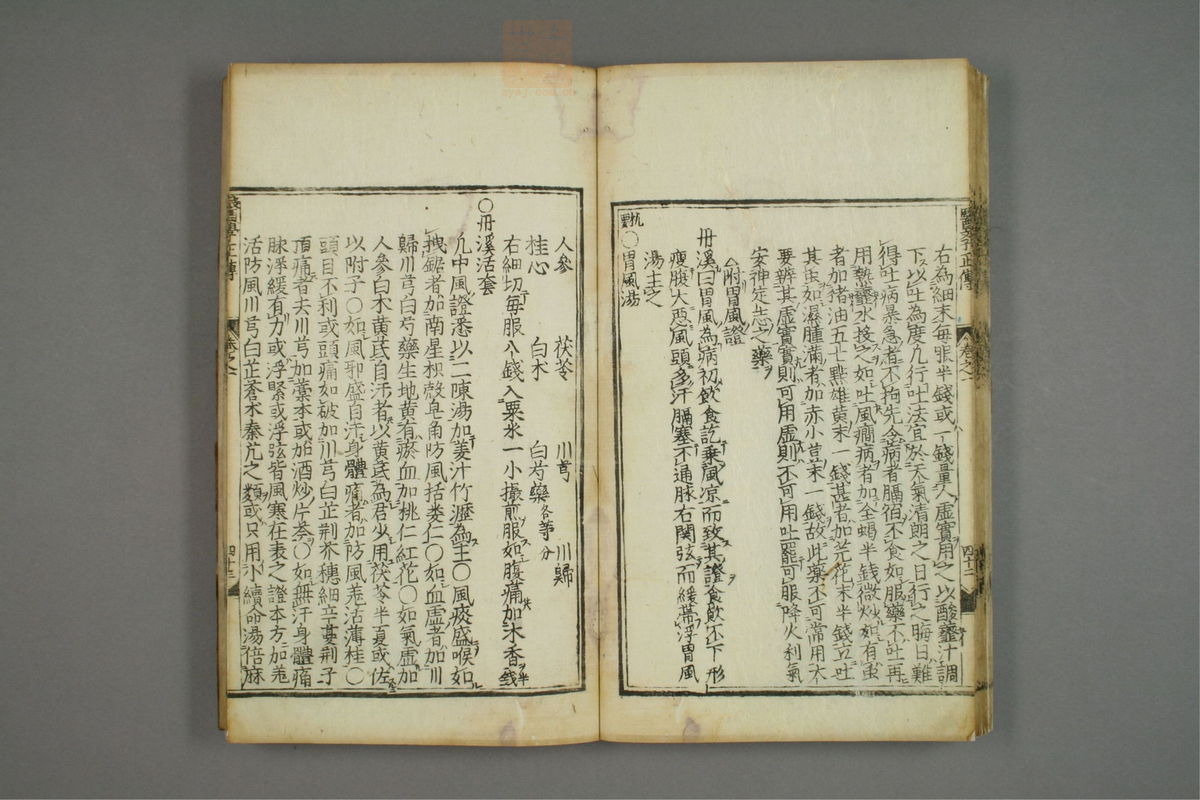 右為細末每服半錢或一錢量人虛實用之以酸虀汁調
下以吐為度凢行吐法宜於天氣清朗之日行之晦日難
得吐病暴急者不拘先令病者隔宿不食如服藥不吐再
用熱虀水投之如吐風癎病者加全蝎半錢微炒如有虫
者加猪油五七㸃雄黄末一錢甚者加芫花末半錢立吐
其虫如濕腫滿者加赤小荳末一錢故此藥不可常用大
要辨其虛實實則可用虛則不可用吐罷可服降火利氣
安神定志之藥
△附胃風證
丹溪曰胃風為病初飲食訖乗風凉而致其證食飲不下形
瘦腹大恶風頭多汗膈塞不通脉右関弦而緩帶浮胃風
湯主之
机要
○胃風湯
人參 茯苓 川芎 川歸
桂心 白术 白芍藥各等分
右細切每服八錢入粟米一小撮煎服如腹痛加木香半錢
○丹溪活套
凢中風證悉以二陳湯加姜汁竹瀝為主○風痰盛喉如
拽鋸者加南星枳殻皂角防風括蒌仁○如血虛者加川
歸川芎白芍藥生地黄有瘀血加桃仁紅花○如氣虛加
人參白术黄芪自汗者以黄芪為君少用茯苓半夏或佐
以附子○如風邪盛自汗身體痛者加防風羗活薄桂○
頭目不利或頭痛如破加川芎白芷荆芥穗細辛蔓荆子
頂痛者去川芎加藁本或加酒炒片芩○如無汗身體痛
脉浮緩有力或浮緊或浮弦皆風寒在表之證本方加羗
活防風川芎白芷蒼术秦艽之類或只用小續命湯倍麻
四十二
四十三